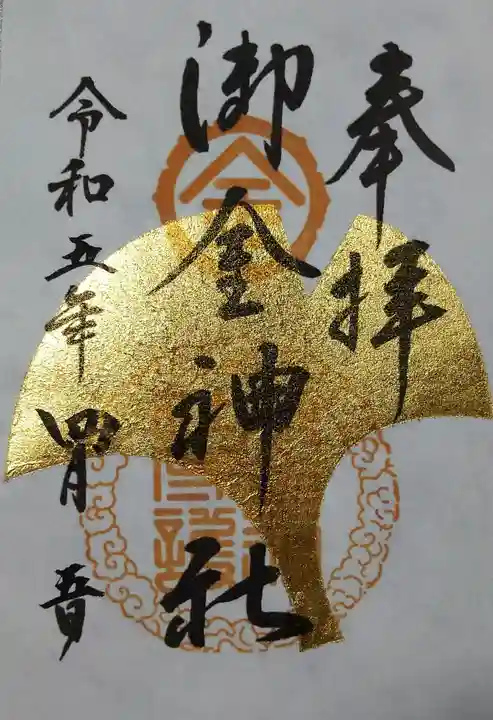 奉拝
御金神社
令和五年四月吉日